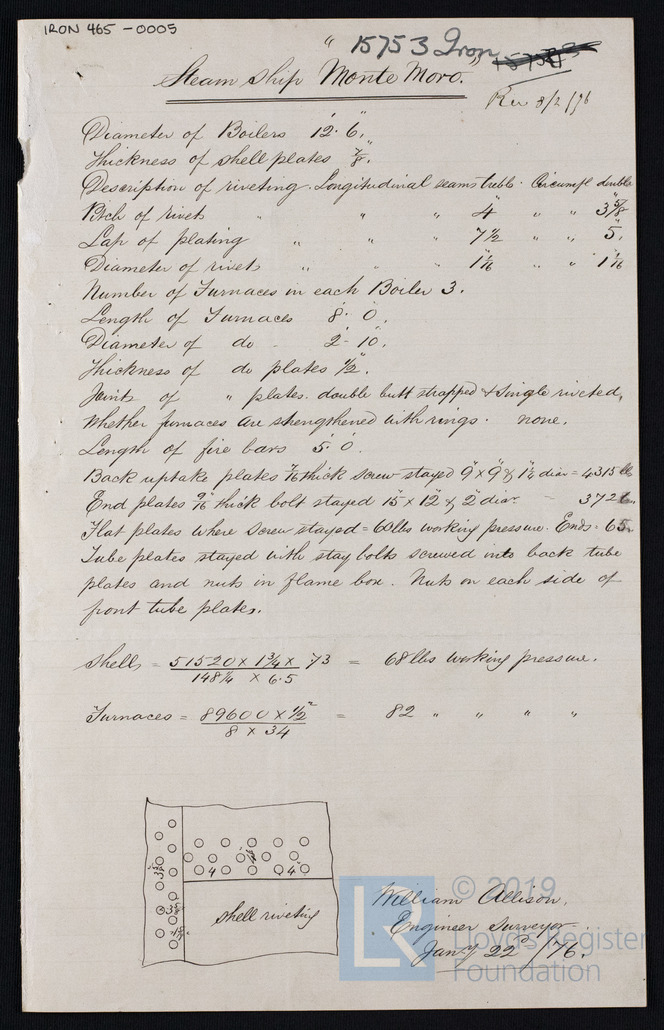 IRON 465-0005
15753 Iron
Steam Ship "Monte Moro."
Rec 8/2/76
Diameter of Boilers 12'. 6".
Thickness of shell plates 7/8".
Description of riveting. Longitudinal seams treble. Circumfl double
Pitch of rivets " " " 4" " " 3 5/8"
Lap of plating " " " 7 1/2 " " 5".
Diameter of rivets " " " 1 1/16 " " 1 1/16
Number of Furnaces in each Boiler 3.
Length of Furnaces 8'. 0".
Diameter of do - 2'- 10".
Thickness of do plates 1/2".
Joints of " plates. double butt strapped & single riveted,
Whether furnaces are strengthened with rings. none.
Length of fire bars 5'. 0".
Back uptake plates 7/16" thick screw stayed 9" x 9" & 1 1/4" dia = 4315 lbs
End plates 9/16" thick bolt stayed 15" x 12" & 2" dia. -
Flat plates where screw stayed = 60lbs working pressure. Ends = 65.
Tube plates stayed with stay bolts screwed into back tube
plates and nuts in flame box. Nuts on each side of
front tube plates.
Shell, = 51520 x 1 3/4 x .73 / 148 1/4 x 6.5 = 68 lbs working pressure.
Furnaces = 89600 x 1/2" / 8 x 34 = 82 " " " "
4 4"
shell riveting
William Allison.
Engineer Surveyor.
Jany 22d /76.
© 2019
LR
Lloyd's Register
Foundation